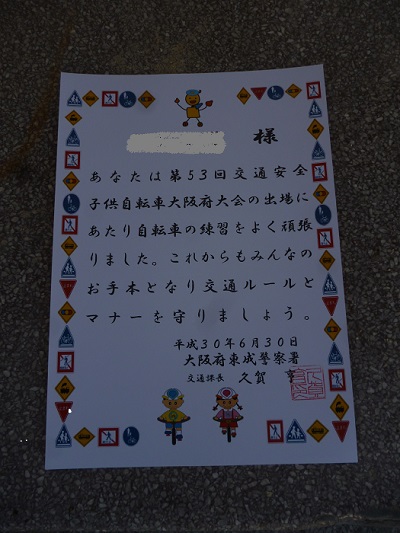 様
あなたは第53回交通安全
子供自転車大阪府大会の出場に
あたり自転車の練習をよく頑張
りました。これからもみんなの
お手本となり交通ルールと
マナーを守りましょう。
平成30年6月30日
大阪府東成警察署
交通課長 久賀 亨